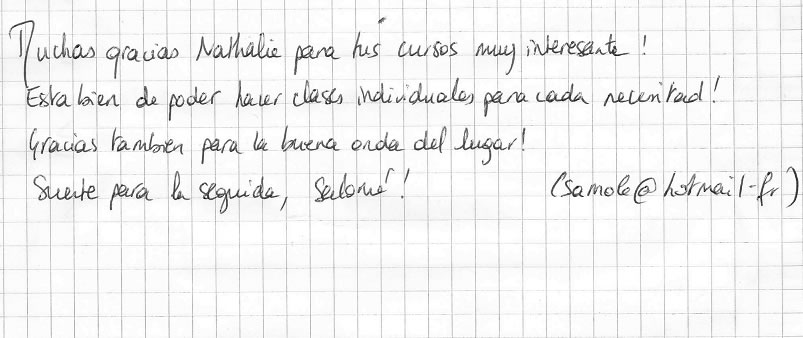 Muchas gracias Nathalie para tus cursos muy interesante !
Esta bien de poder hacer clases individuales para cada necesitad !
Gracias tambien para la buena onda del lugar !
Suerte para la seguida, Salomé ! (samole@hotmail.fr)